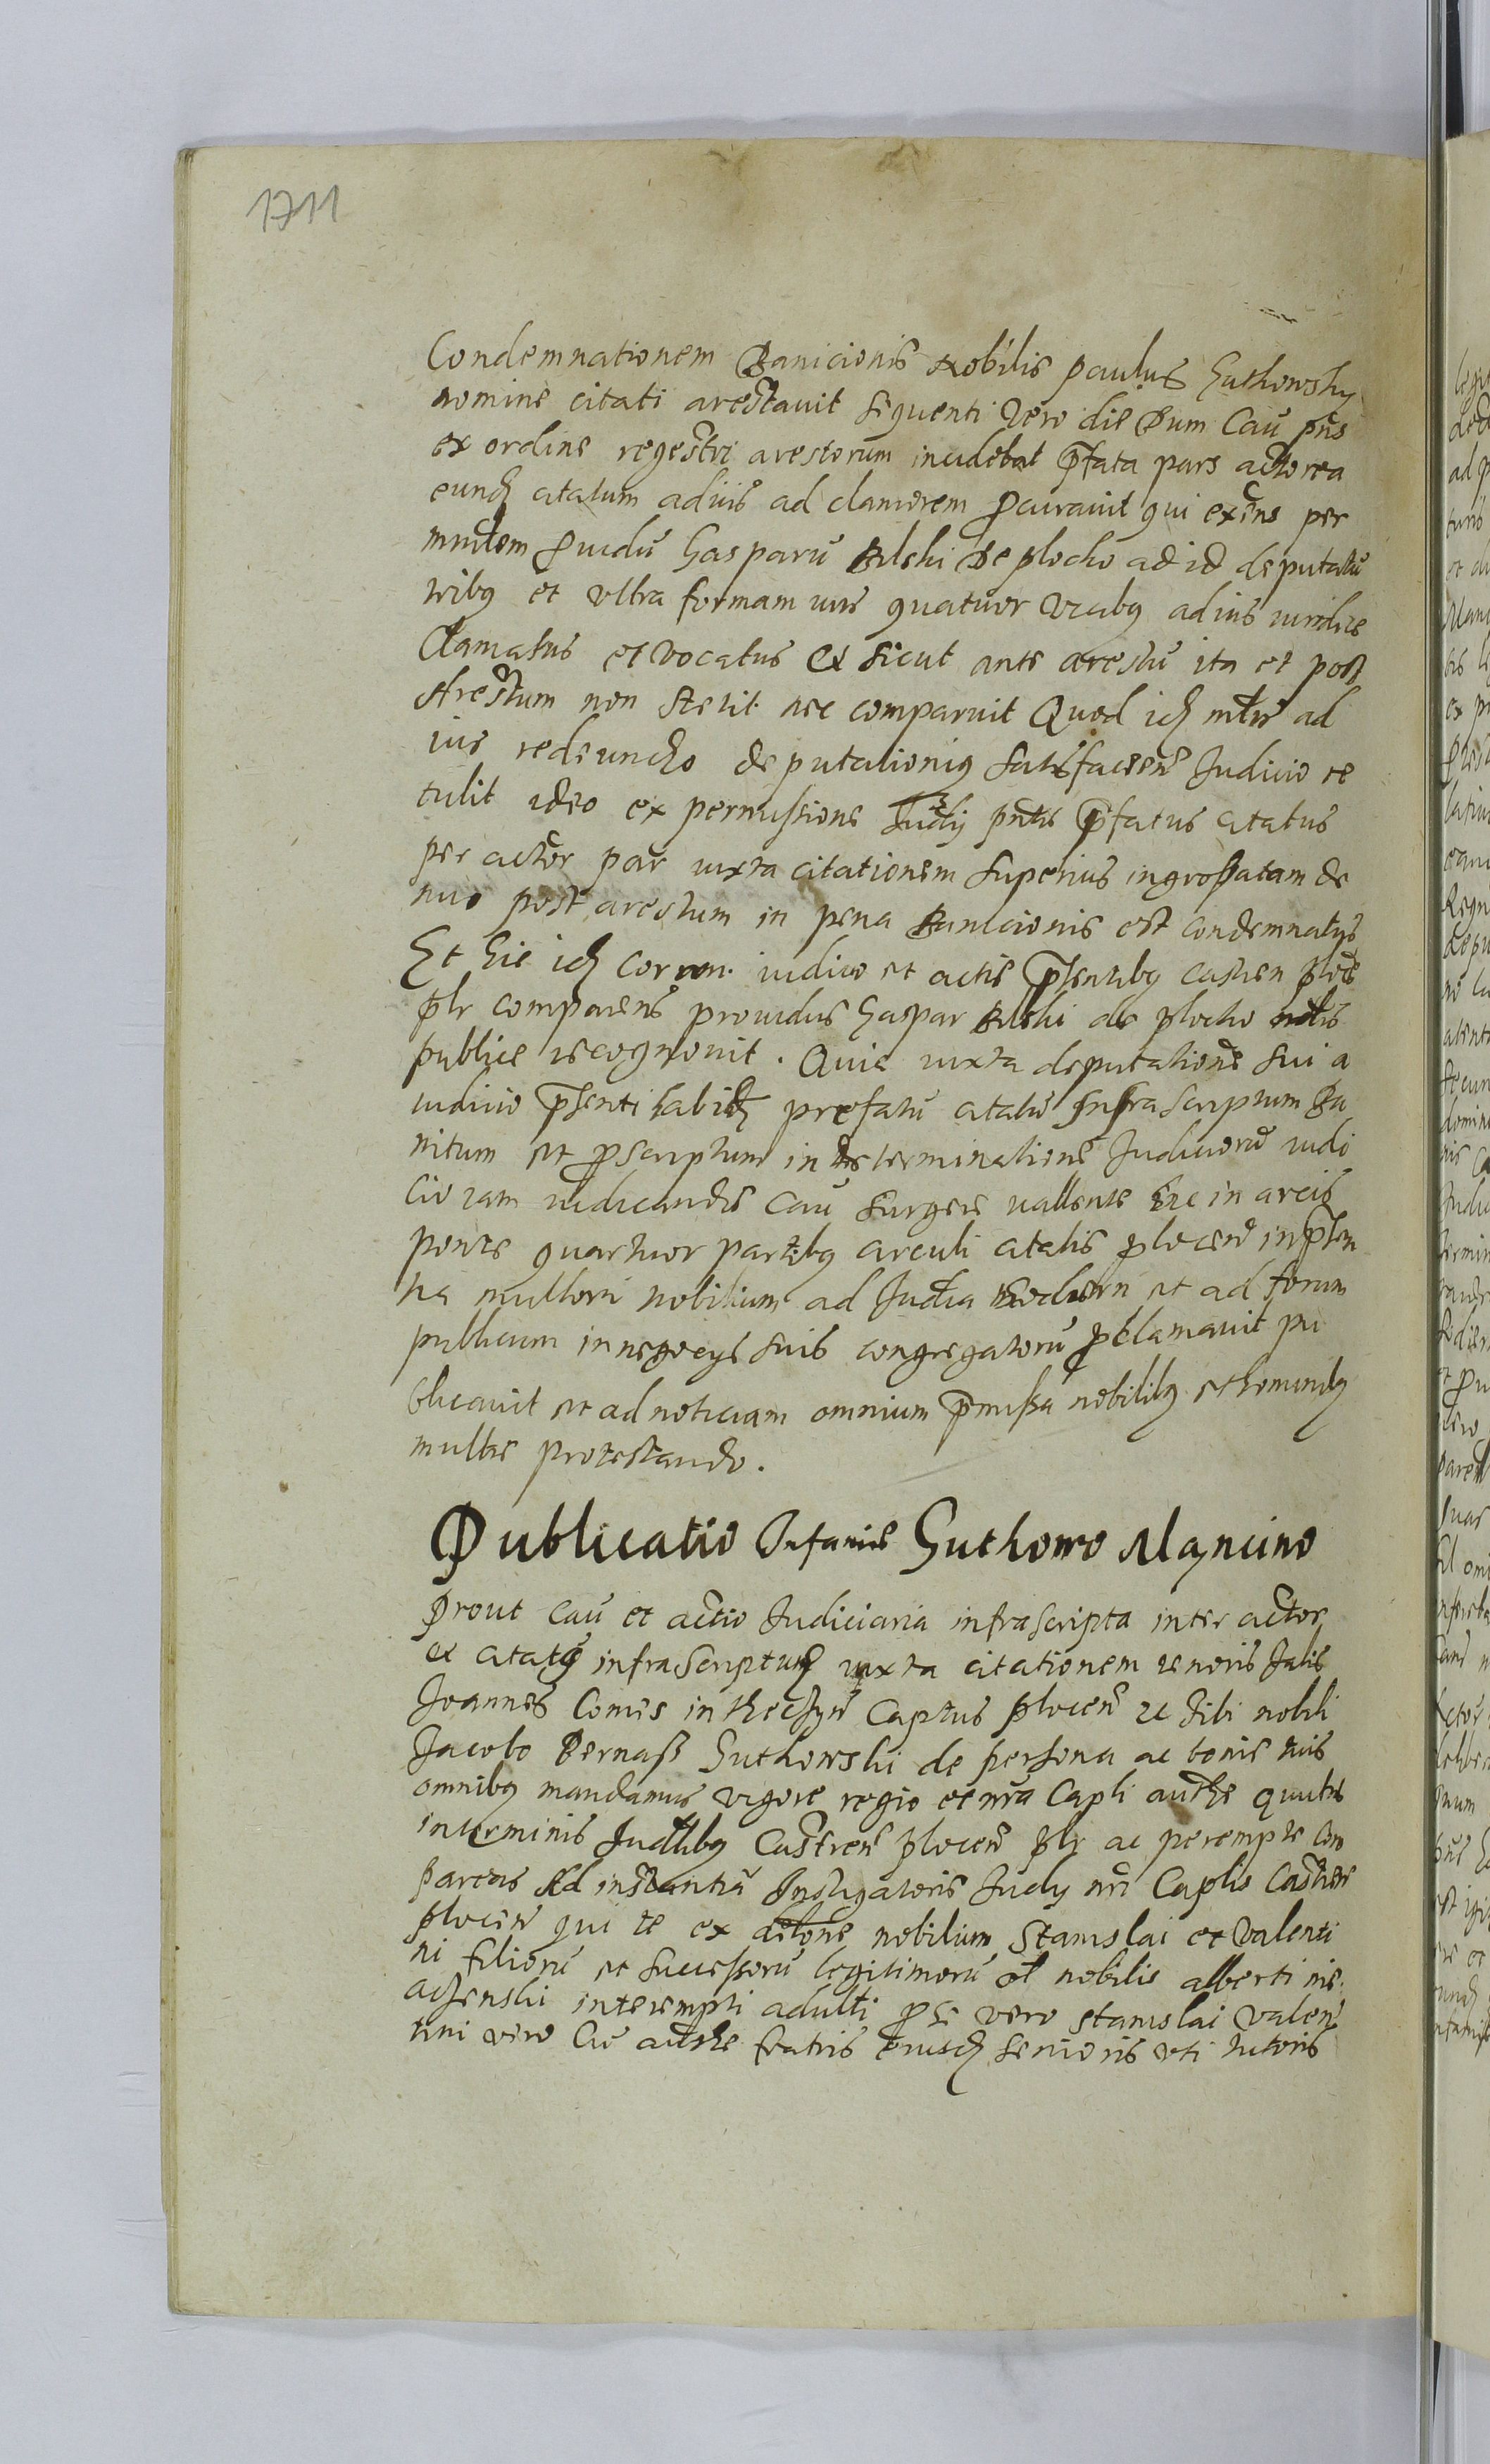 1711
Condemnationem Banicionis Nobilis paulus Guthowsky
nomine citati arestauit sequenti vero die Dum Cau pns
ex ordine regestri arestorum incidebat pfata pars actorea
eund citatum ad iuis ad clamorem pcurauit qui exens per
mnrlem puidu Gasparu Bilski De plocko ad id deputatu
tribq et vltra formam iuris quatuor vicibq ad ius iuridice
Clamatus et vocatus Et sicut ante arestu ita et post
Arestum non stetit nec comparuit Quod id mlris ad
iure redeundo deputationiq satisfacien Judicio re
tulit ideo ex permissione Judy pntis pfatus citatus
per actor par iuxta citationem superius ingrossatam de
nuo post arestum in pena Banicionis est condemnatus
Et hic id coram iudicio et actis psentibq castren ploce
plr comparens prouidus Gaspar Bilski de plocko
publice recognouit. Quia iuxta deputatione sui a
iudicio psenti prefatu citatu Infrascriptum Ba
nitum et pscriptum in determinatione Judicioru iudi
cio iam iudicandis cau surgere vallente hic in arcis
ponte quartuor partibq circuli citatis plocen in psen
tia multoru nobilium ad Judicia et ad forum
publicum in negocys suis congregatoru pclamauit pu
blicauit et ad noticiam omnium pmissa nobilibq et hominibq
multis protestando.
Publicatio Infamie Guthowo Mancino
Prout cau et actio Judiciaria infrascripta inter actor
et citatq infrascriptum iuxta citationem tenoris talis
Joannes Comes in thecsyn Captus plocen zc Tibi nobili
Jacobo Bernass Guthowski de persona ac bonis tuis
omnibq mandamus vigore regio et nra Capli authe quatus
in terminis Judlibq Castren plocen plr ac peremptr com
pareas Ad instantia Instigatoris Judy nri Caplis Castren
plocen qui te ex nobilium Stanislai et Valenti
ni filioru et successoru legitimoru ol nobilis alberti
interempti adulti p se vero stanislai Valen
tini vero cu authe fratris eiusd senioris vti tutoris